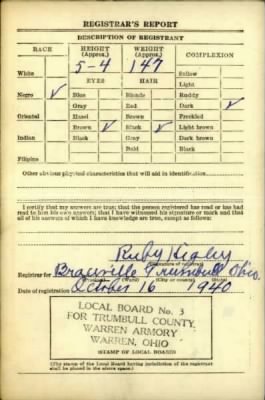 REGISTRAR'S REPORT
DESCRIPTION OF REGISTRANT
RACE HEIGHT (Approx.) WEIGHT (Approx.) COMPLEXION
5-4 147
White Sallow
EYES HAIR Light
Negro ✓ Blue Blonde Ruddy
Gray Red Dark ✓
Oriental Hazel Brown Freckled
Brown ✓ Black ✓ Light brown
Indian Black Gray Dark brown
Bald Black
Filipino
Other obvious physical characteristics that will aid in identification
I certify that my answers are true; that the person registered has read or has had
read to him his own answers; that I have witnessed his signature or mark and that
all of his answers of which I have knowledge are true, except as follows:
Ruby Higley
(Signature of registrar)
Registrar for Trumbull Ohio.
(Precinct) (Ward) (City or county) (State)
Date of registration October 16 1940
LOCAL BOARD No. 3
FOR TRUMBULL COUNTY
WARREN ARMORY
WARREN, OHIO
(STAMP OF LOCAL BOARD)
(The stamp of the Local Board having jurisdiction of the registrant
shall be placed in the above space.)